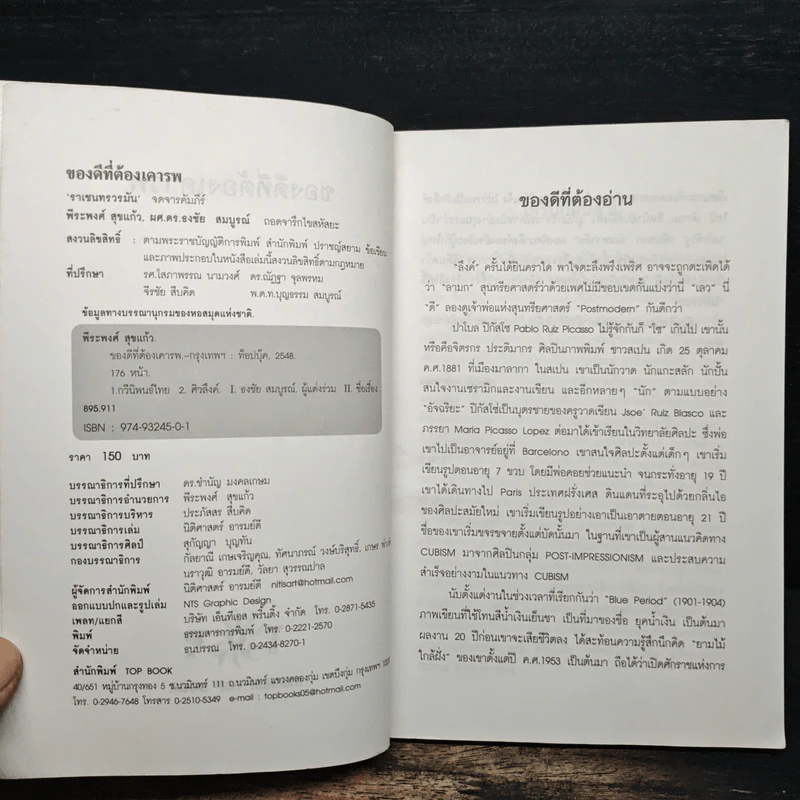 ของดีที่ต้องเคารพ
'ราเชนทรวรมัน' จดจารคัมภีร์
พีระพงศ์ สุขแก้ว, ผศ.ดร.ธงชัย สมบูรณ์ ถอดจารึกไขสหัสยะ
สงวนลิขสิทธิ์ : ตามพระราชบัญญัติการพิมพ์ สำนักพิมพ์ ปราชญ์สยาม ข้อเขียน
และภาพประกอบในหนังสือเล่มนี้สงวนลิขสิทธิ์ตามกฎหมาย
ที่ปรึกษา รศ.โสภาพรรณ นามวงศ์ ดร.ณัฏฐา จุลพรหม
จีรชัย สืบคิด พ.ต.ท.บุญธรรม สมบูรณ์
ข้อมูลทางบรรณานุกรมของหอสมุดแห่งชาติ.
พีระพงศ์ สุขแก้ว.
ของดีที่ต้องเคารพ.--กรุงเทพฯ : ท็อปบุ๊ค, 2548.
176 หน้า.
1.กวีนิพนธ์ไทย 2. ศิวลึงค์. I. ธงชัย สมบูรณ์, ผู้แต่งร่วม II. ชื่อเรื่อง
895.911
ISBN : 974-93245-0-1
ราคา 150 บาท
บรรณาธิการที่ปรึกษา ดร.ชำนัญ มงคลเกษม
บรรณาธิการอำนวยการ พีระพงศ์ สุขแก้ว
บรรณาธิการบริหาร ประภัสสร สืบคิด
บรรณาธิการเล่ม นิติศาสตร์ อารมย์ดี
บรรณาธิการศิลป์ สุกัญญา บุญทัน
กองบรรณาธิการ กัลยาณี เกษเจริญคุณ, ทัศนาภรณ์ วงษ์บริสุทธิ์, เกษร
นราวุฒิ อารมย์ดี, วัลยา สุวรรณปาล
ผู้จัดการสำนักพิมพ์ นิติศาสตร์ อารมย์ดี nitisart@hotmail.com
ออกแบบปกและรูปเล่ม NTS Graphic Design
เพลท/แยกสี บริษัท เอ็นทีเอส พริ้นติ้ง จำกัด โทร. 0-2871-5435
พิมพ์ ธรรมสารการพิมพ์ โทร. 0-2221-2570
จัดจำหน่าย ธนบรรณ โทร. 0-2434-8270-1
สำนักพิมพ์ TOP BOOK
40/651 หมู่บ้านกรุงทอง 5 ซ.นวมินทร์ 111 ถ.นวมินทร์ แขวงคลองกุ่ม เขตบึงกุ่ม กรุงเทพฯ
โทร. 0-2946-7648 โทรสาร 0-2510-5349 e-mail : topbooks05@hotmail.com
ของดีที่ต้องอ่าน
"ลึงค์" ครั้นได้ยินคราใด พาใจตะลึงพรึงเพริศ อาจจะถูกตะเพิดได้
ว่า "ลามก" สุนทรียศาสตร์ว่าด้วยเพศไม่มีขอบเขตกั้นแบ่งว่านี่ "เลว" นี่
"ดี" ลองดูเจ้าพ่อแห่งสุนทรียศาสตร์ "Postmodern" กันดีกว่า
ปาโบล ปิกัสโซ่ Pablo Ruiz Picasso ไม่รู้จักกันก็ "โซ" เกินไป เขานั้น
หรือคือจิตรกร ประติมากร ศิลปินภาพพิมพ์ ชาวสเปน เกิด 25 ตุลาคม
ค.ศ.1881 ที่เมืองมาลากา ในสเปน เขาเป็นนักวาด นักแกะสลัก นักปั้น
สนใจงานเซรามิกและงานเขียน และอีกหลายๆ "นัก" ตามแบบอย่าง
"อัจฉริยะ" ปิกัสโซ่เป็นบุตรชายของครูวาดเขียน Jsoe' Ruiz Blasco และ
ภรรยา Maria Picasso Lopez ต่อมาได้เข้าเรียนในวิทยาลัยศิลปะ ซึ่งพ่อ
เขาไปเป็นอาจารย์อยู่ที่ Barcelono เขาสนใจศิลปะตั้งแต่เด็กๆ เขาเริ่ม
เขียนรูปตอนอายุ 7 ขวบ โดยมีพ่อคอยช่วยแนะนำ จนกระทั่งอายุ 19 ปี
เขาได้เดินทางไป Paris ประเทศฝรั่งเศส ดินแดนที่ระอุไปด้วยกลิ่นไอ
ของศิลปะสมัยใหม่ เขาเริ่มเขียนรูปอย่างเอาเป็นเอาตายตอนอายุ 21 ปี
ชื่อของเขาเริ่มขจรขจายตั้งแต่บัดนั้นมา ในฐานที่เขาเป็นผู้สานแนวคิดทาง
CUBISM มาจากศิลปินกลุ่ม POST-IMPRESSIONISM และประสบความ
สำเร็จอย่างงามในแนวทาง CUBISM
นับตั้งแต่งานในช่วงเวลาที่เรียกกันว่า "Blue Period" (1901-1904)
ภาพเขียนที่ใช้โทนสีน้ำเงินเย็นชา เป็นที่มาของชื่อ ยุคน้ำเงิน เป็นต้นมา
ผลงาน 20 ปีก่อนเขาจะเสียชีวิตลง ได้สะท้อนความรู้สึกนึกคิด "ยามไม้
ใกล้ฝั่ง" ของเขาตั้งแต่ปี ค.ศ.1953 เป็นต้นมา ถือได้ว่าเปิดศักราชแห่งการ